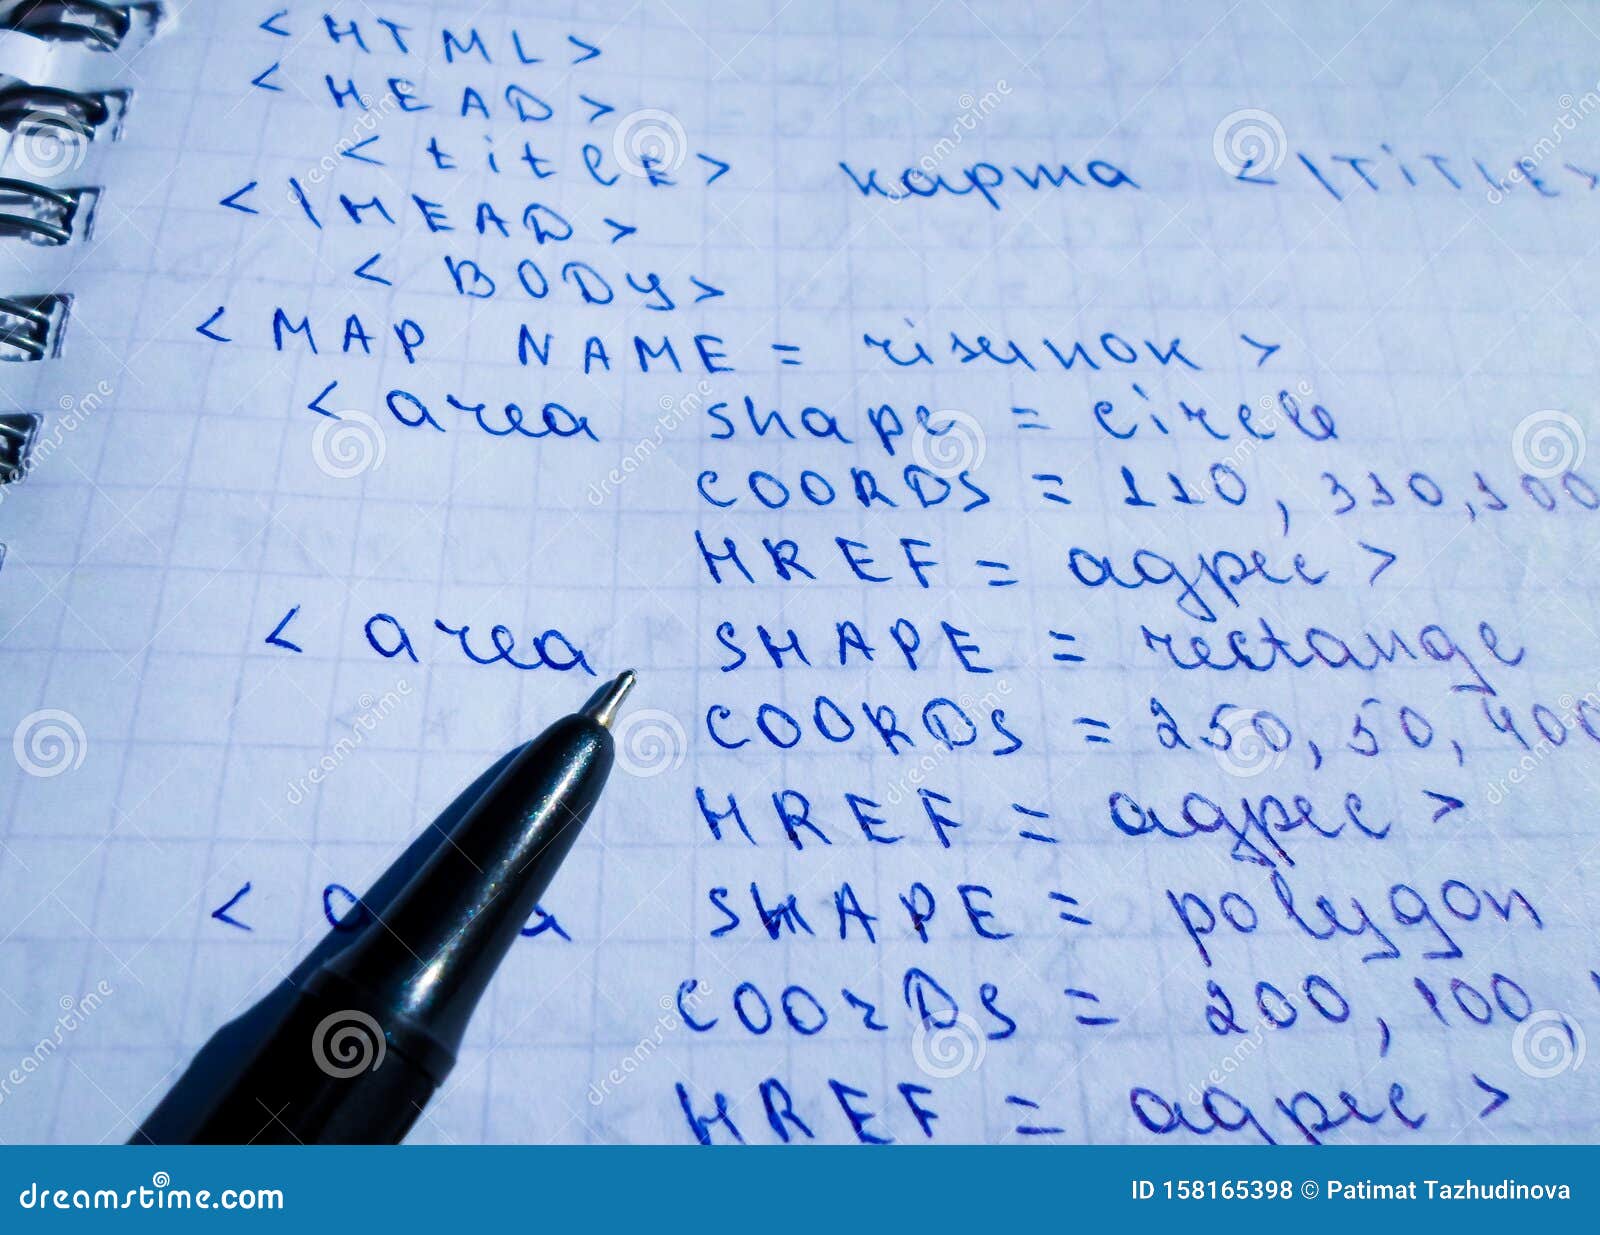 <HTML>
<HEAD>
<titlE> карта <\TiTLE>
<\HEAD>
<BODY>
<MAP NAME = risunok>
<area shape = circle
COORDS = 110, 310, 100
HREF = адрес>
<area SHAPE = rectange
COORDS = 250, 50, 400
HREF = адрес>
< SHAPE = polygon
COOrDS = 200, 100,
HREF = адрес>
dreamstime.com
ID 158165398 © Patimat Tazhudinova